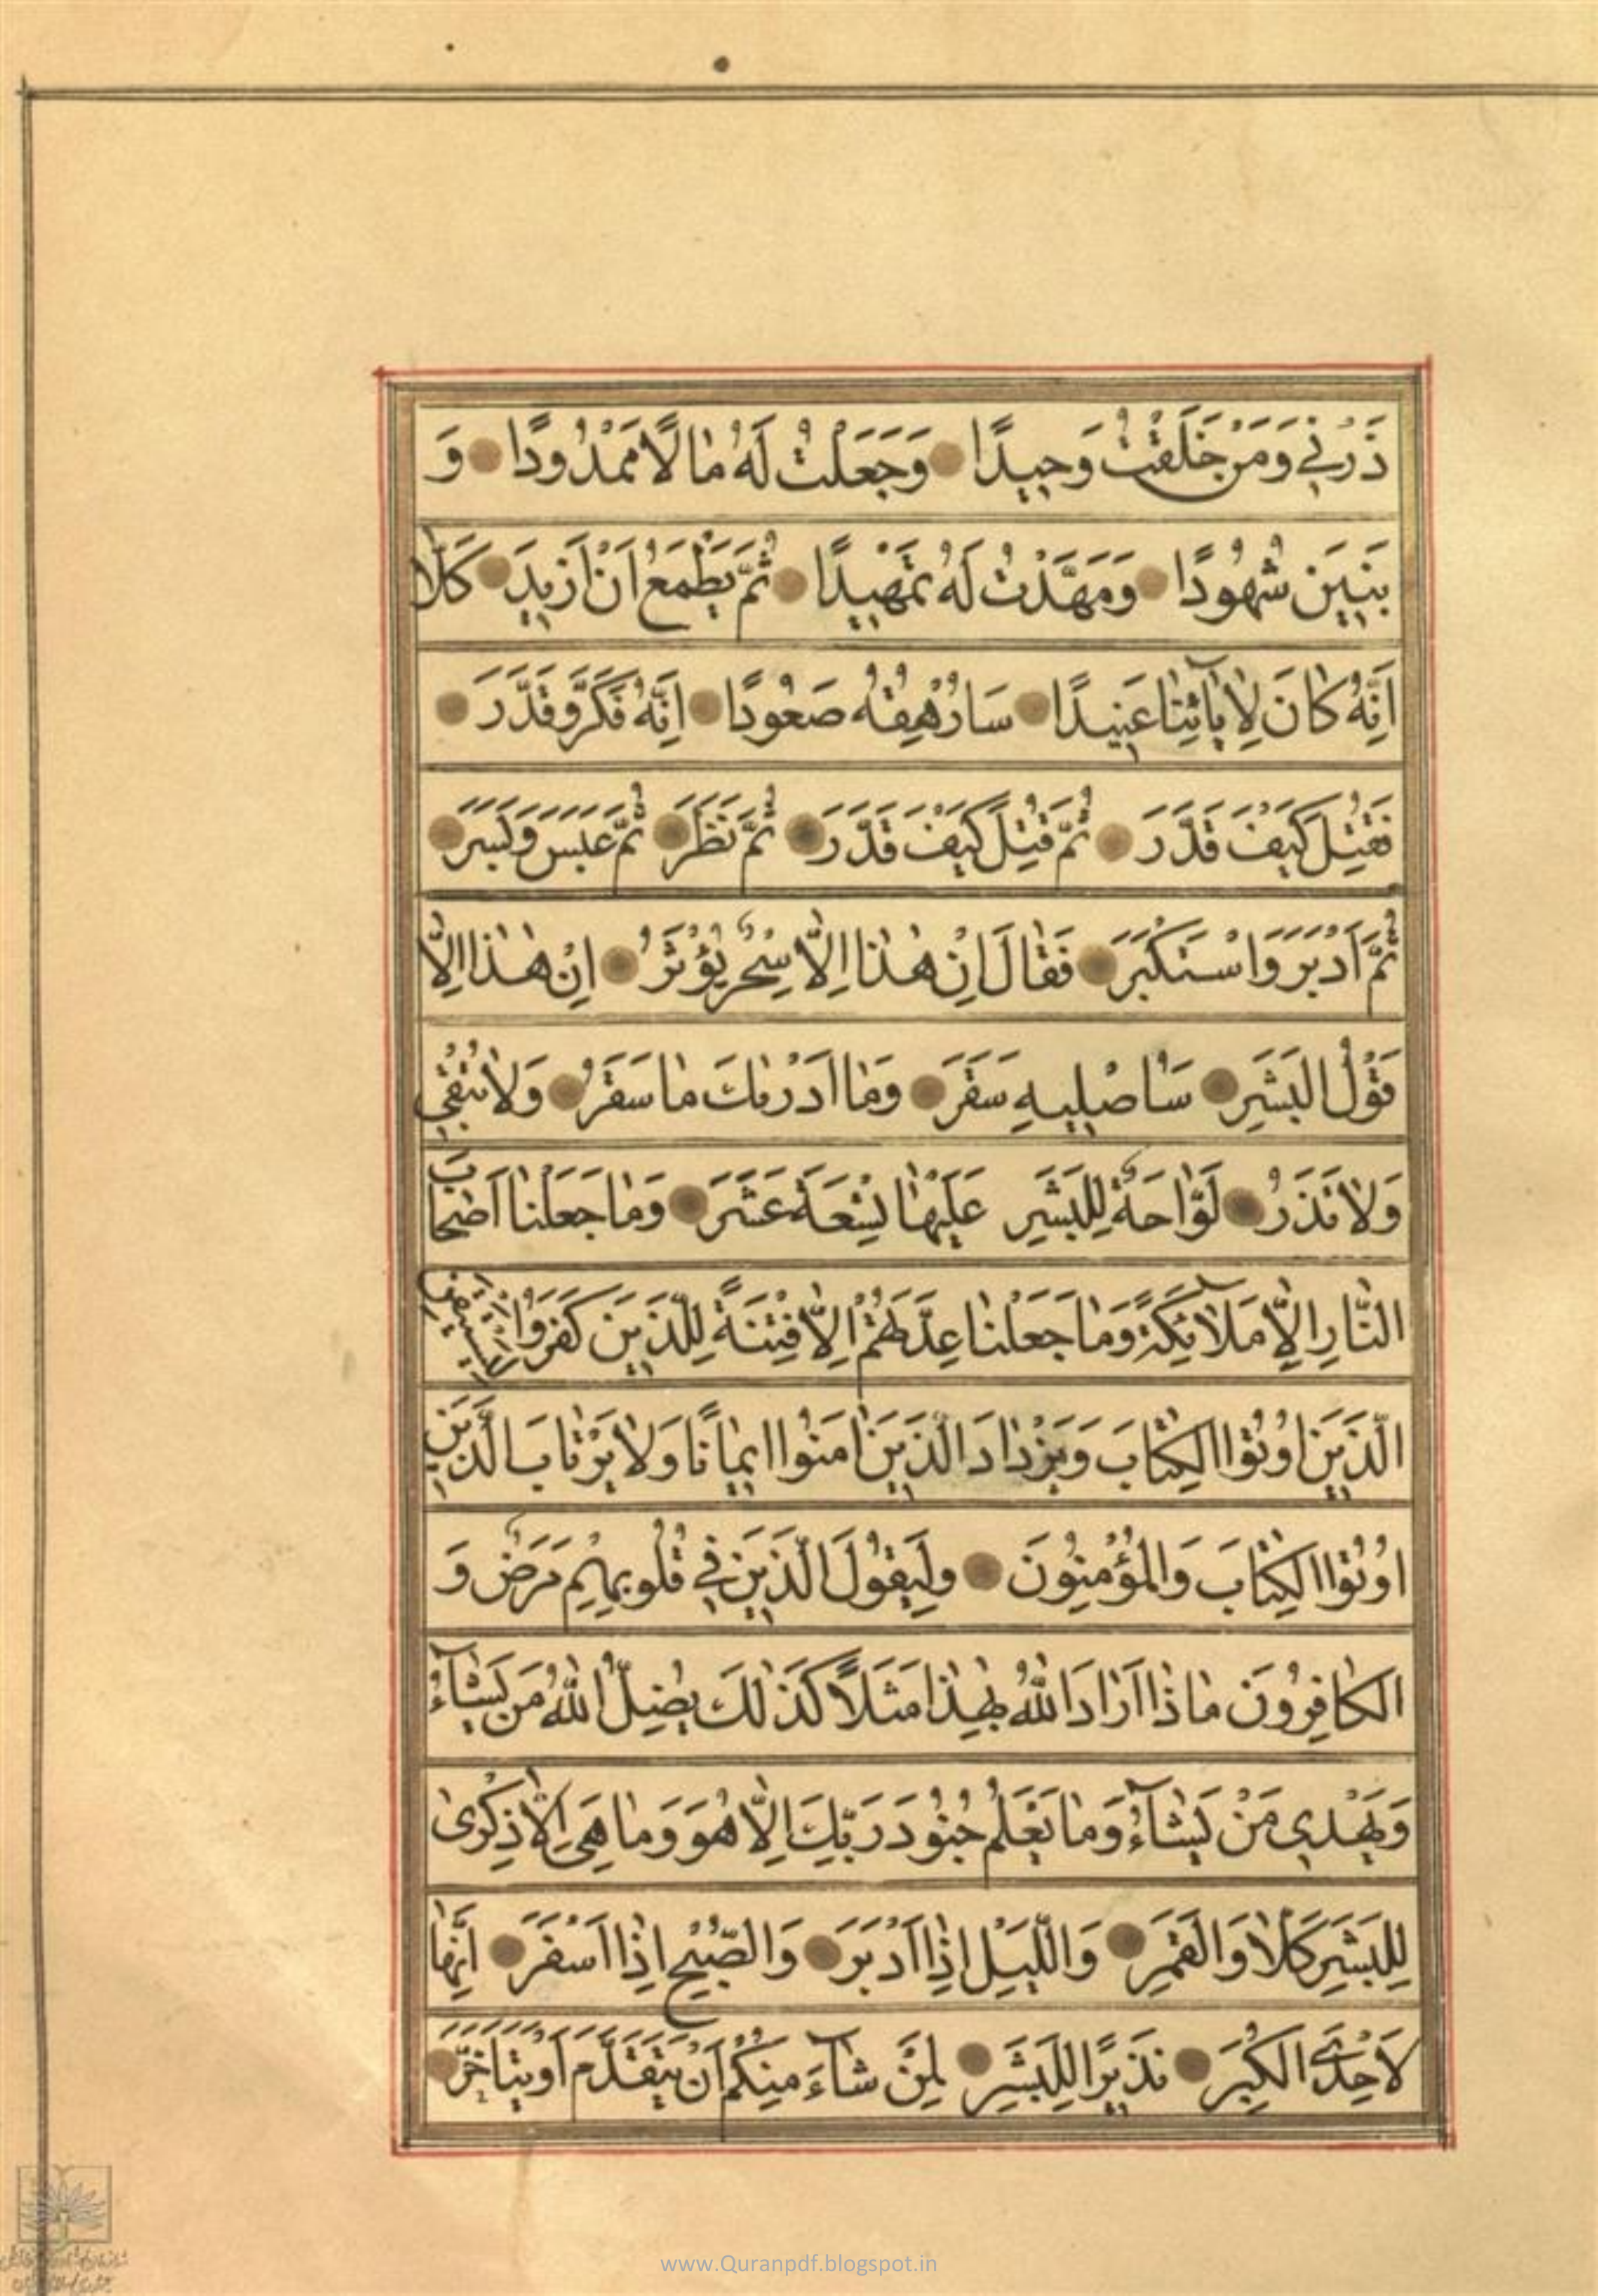 ذَرْنِي وَمَنْ خَلَقْتُ وَحِيدًا وَجَعَلْتُ لَهُ مَالًا مَمْدُودًا وَ
بَنِينَ شُهُودًا وَمَهَّدْتُ لَهُ تَمْهِيدًا ثُمَّ يَطْمَعُ اَنْ اَزِيدَ كَلَّا
اِنَّهُ كَانَ لِاٰيَاتِنَا عَنِيدًا سَاُرْهِقُهُ صَعُودًا اِنَّهُ فَكَّرَ وَقَدَّرَ
فَقُتِلَ كَيْفَ قَدَّرَ ثُمَّ قُتِلَ كَيْفَ قَدَّرَ ثُمَّ نَظَرَ ثُمَّ عَبَسَ وَبَسَرَ
ثُمَّ اَدْبَرَ وَاسْتَكْبَرَ فَقَالَ اِنْ هٰذَا اِلَّا سِحْرٌ يُؤْثَرُ اِنْ هٰذَا اِلَّا
قَوْلُ الْبَشَرِ سَاُصْلِيهِ سَقَرَ وَمَا اَدْرٰيكَ مَا سَقَرُ وَلَا تُبْقِي
وَلَا تَذَرُ لَوَّاحَةٌ لِلْبَشَرِ عَلَيْهَا تِسْعَةَ عَشَرَ وَمَا جَعَلْنَا اَصْحَابَ
النَّارِ اِلَّا مَلَآئِكَةً وَمَا جَعَلْنَا عِدَّتَهُمْ اِلَّا فِتْنَةً لِلَّذِينَ كَفَرُوا لِيَسْتَيْقِنَ
الَّذِينَ اُوتُوا الْكِتَابَ وَيَزْدَادَ الَّذِينَ اٰمَنُوا اِيمَانًا وَلَا يَرْتَابَ الَّذِينَ
اُوتُوا الْكِتَابَ وَالْمُؤْمِنُونَ وَلِيَقُولَ الَّذِينَ فِي قُلُوبِهِمْ مَرَضٌ وَ
الْكَافِرُونَ مَاذَا اَرَادَ اللّٰهُ بِهٰذَا مَثَلًا كَذٰلِكَ يُضِلُّ اللّٰهُ مَنْ يَشَآءُ
وَيَهْدِي مَنْ يَشَآءُ وَمَا يَعْلَمُ جُنُودَ رَبِّكَ اِلَّا هُوَ وَمَا هِيَ اِلَّا ذِكْرٰى
لِلْبَشَرِ كَلَّا وَالْقَمَرِ وَاللَّيْلِ اِذَا اَدْبَرَ وَالصُّبْحِ اِذَا اَسْفَرَ اِنَّهَا
لَاِحْدَى الْكُبَرِ نَذِيرًا لِلْبَشَرِ لِمَنْ شَآءَ مِنْكُمْ اَنْ يَتَقَدَّمَ اَوْ يَتَاَخَّرَ
www.Quranpdf.blogspot.in